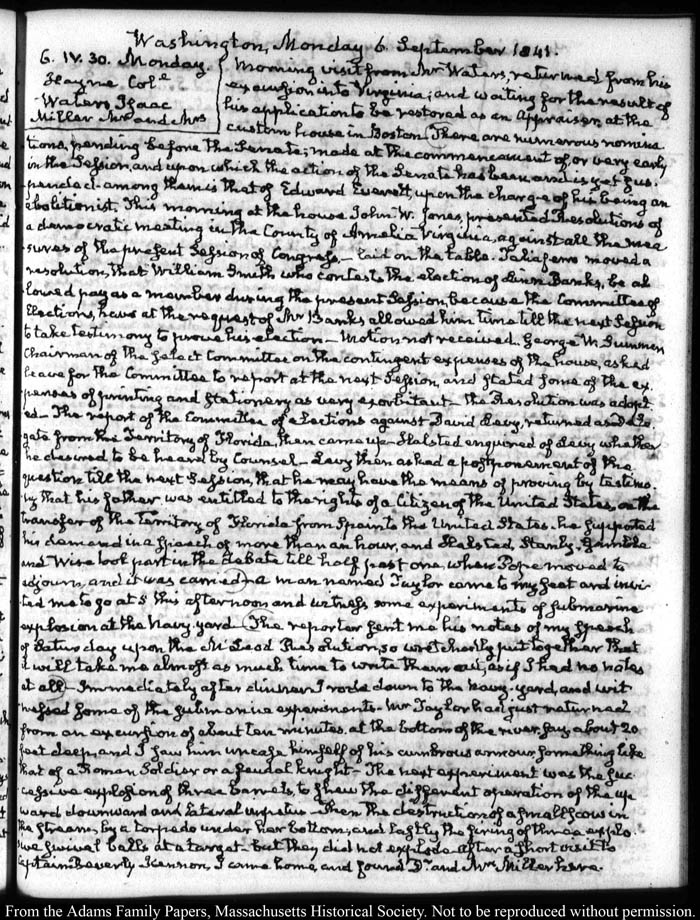 Washington, Monday 6. September 1841.
6. IV. 30. Monday
Hayne Colˡ
Waters Isaac
Miller Mr and Mrs
Morning visit from Mr Waters, returned from his
excursion into Virginia; and waiting for the result of
his application to be restored as an Appraiser, at the
custom house in Boston. There are numerous nomina
tions, pending before the Senate; made at the commencement of, or very early
in the Session, and upon which the action of the Senate has been and is yet sus-
pended. among them is that of Edward Everett, upon the charge of his being an
abolitionist. This morning at the house John W. Jones, presented Resolutions of
a democratic meeting in the County of Amelia Virginia, against all the mea
sures of the present Session of Congress,— laid on the table. Taliaferro moved a
resolution, that William Smith who contests the election of Linn Banks, be al
lowed pay as a member during the present Session, because the Committee of
Elections, have at the request of Mr Banks allowed him time till the next Session
to take testimony to prove his election— Motion not received. George W. Summers
Chairman of the Select Committee on the contingent expenses of the house, asked
leave for the Committee to report at the next Session, and stated some of the ex.
penses of printing and stationery as very exorbitant— the Resolution was adopt
ed— The report of the Committee of elections against David Levy, returned as Dele
gate from the Territory of Florida, then came up— Halsted enquired of Levy whether
he desired to be heard by Counsel— Levy then asked a postponement of the
question till the next Session, that he may have the means of proving by testimo.
ny that his father was entitled to the rights of a Citizen of the United States, on the
transfer of the Territory of Florida from Spain to the United States. he supported
his demand in a speech of more than an hour, and Halsted, Stanly, Gamble
and Wise took part in the debate till half past one, when Pope moved to
adjourn, and it was carried— a man named Taylor came to my seat and invi
ted me to go at 5 this afternoon and witness some experiments of submarine
explosion at the Navy-yard. The reporter sent me his notes of my Speech
of Saturday upon the McLeod Resolution, so wretchedly put together that
it will take me almost as much time to write them out, as if I had no notes
at all— Immediately after dinner I rode down to the Navy-yard, and wit
nessed some of the submarine experiments. Mr Taylor had just returned
from an excursion of about ten minutes, at the bottom of the river, say about 20
feet deep, and I saw him uncase himself of his cumbrous armour something like
that of a Roman Soldier or a feudal knight— The next experiment was the suc
cessive explosion of three barrels, to shew the different operation of the up
ward downward and lateral impetus— Then the destruction of a small scow in
the stream, by a torpedo under her bottom; and lastly the firing of three explo.
sive swivel balls at a target— but they did not explode. After a short visit to
Captain Beverly Kennon, I came home, and found Dr. and Mrs Miller here.
From the Adams Family Papers, Massachusetts Historical Society. Not to be reproduced without permission.